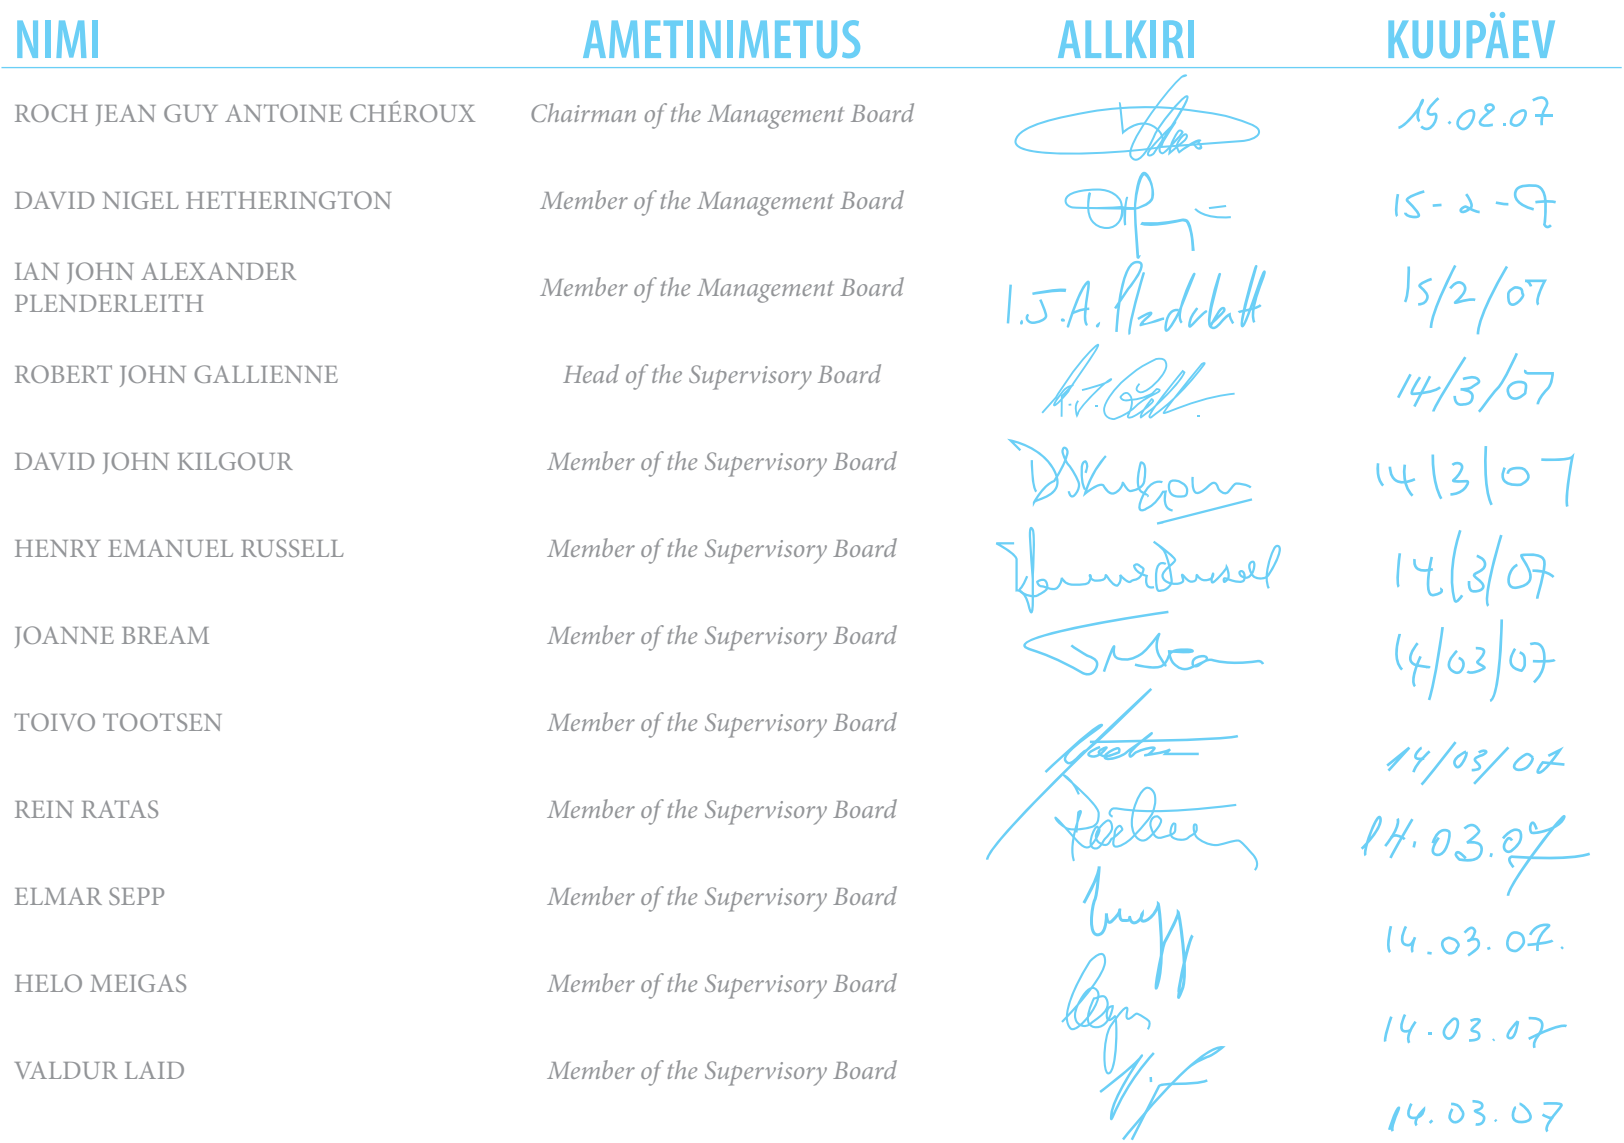 NIMI AMETINIMETUS ALLKIRI KUUPÄEV
ROCH JEAN GUY ANTOINE CHÉROUX Chairman of the Management Board 15.02.07
DAVID NIGEL HETHERINGTON Member of the Management Board 15-2-07
IAN JOHN ALEXANDER
PLENDERLEITH Member of the Management Board I.J.A. 15/2/07
ROBERT JOHN GALLIENNE Head of the Supervisory Board 14/3/07
DAVID JOHN KILGOUR Member of the Supervisory Board DJKilgour 14/3/07
HENRY EMANUEL RUSSELL Member of the Supervisory Board 14/3/07
JOANNE BREAM Member of the Supervisory Board 14/03/07
TOIVO TOOTSEN Member of the Supervisory Board 14/03/07
REIN RATAS Member of the Supervisory Board 14.03.07
ELMAR SEPP Member of the Supervisory Board 14.03.07.
HELO MEIGAS Member of the Supervisory Board 14.03.07
VALDUR LAID Member of the Supervisory Board 14.03.07